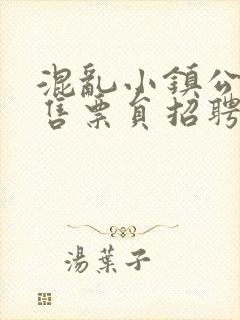 混亂小鎮公
售票員招聘
湯葉子